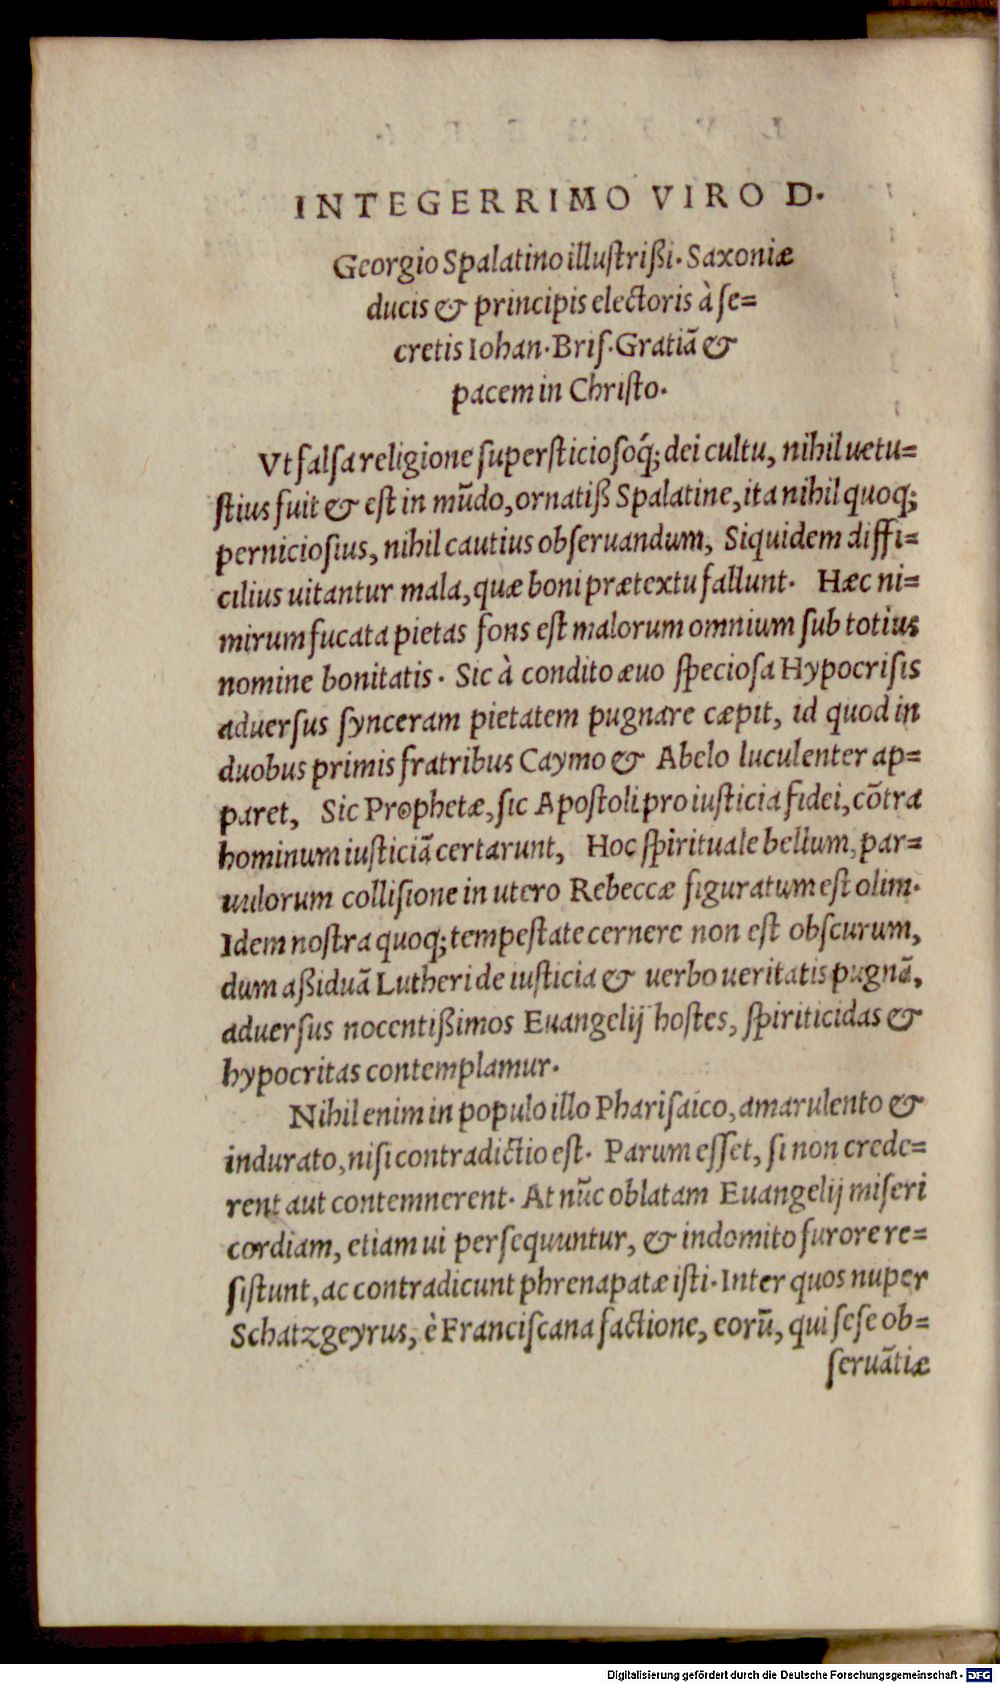 INTEGERRIMO VIRO D.
Georgio Spalatino illuſtrißi. Saxoniæ
ducis & principis electoris à ſe=
cretis Iohan. Briſ. Gratiā &
pacem in Chriſto.
Vt falſa religione ſuperſticioſoq́; dei cultu, nihil uetu=
ſtius fuit & eſt in mūdo, ornatiß Spalatine, ita nihil quoq;
pernicioſius, nihil cautius obſeruandum, Siquidem diffi=
cilius uitantur mala, quæ boni prætextu fallunt. Hæc ni=
mirum fucata pietas fons eſt malorum omnium ſub totius
nomine bonitatis. Sic à condito æuo ſpecioſa Hypocriſis
aduerſus ſynceram pietatem pugnare cæpit, id quod in
duobus primis fratribus Caymo & Abelo luculenter ap=
paret, Sic Prophetæ, ſic Apoſtoli pro iuſticia fidei, cōtra
hominum iuſticiā certarunt, Hoc ſpirituale bellum, par=
uulorum colliſione in utero Rebeccæ figuratum eſt olim.
Idem noſtra quoq; tempeſtate cernere non eſt obſcurum,
dum aßiduā Lutheri de iuſticia & uerbo ueritatis pugnā,
aduerſus nocentißimos Euangelij hoſtes, ſpiriticidas &
hypocritas contemplamur.
Nihil enim in populo illo Phariſaico, amarulento &
indurato, niſi contradictio eſt. Parum eſſet, ſi non crede=
rent aut contemnerent. At nūc oblatam Euangelij miſeri
cordiam, etiam ui perſequuntur, & indomito furore re=
ſiſtunt, ac contradicunt phrenapatæ iſti. Inter quos nuper
Schatzgeyrus, è Franciſcana factione, eorū, qui ſeſe ob=
ſeruātiæ
Digitalisierung gefördert durch die Deutsche Forschungsgemeinschaft - DFG